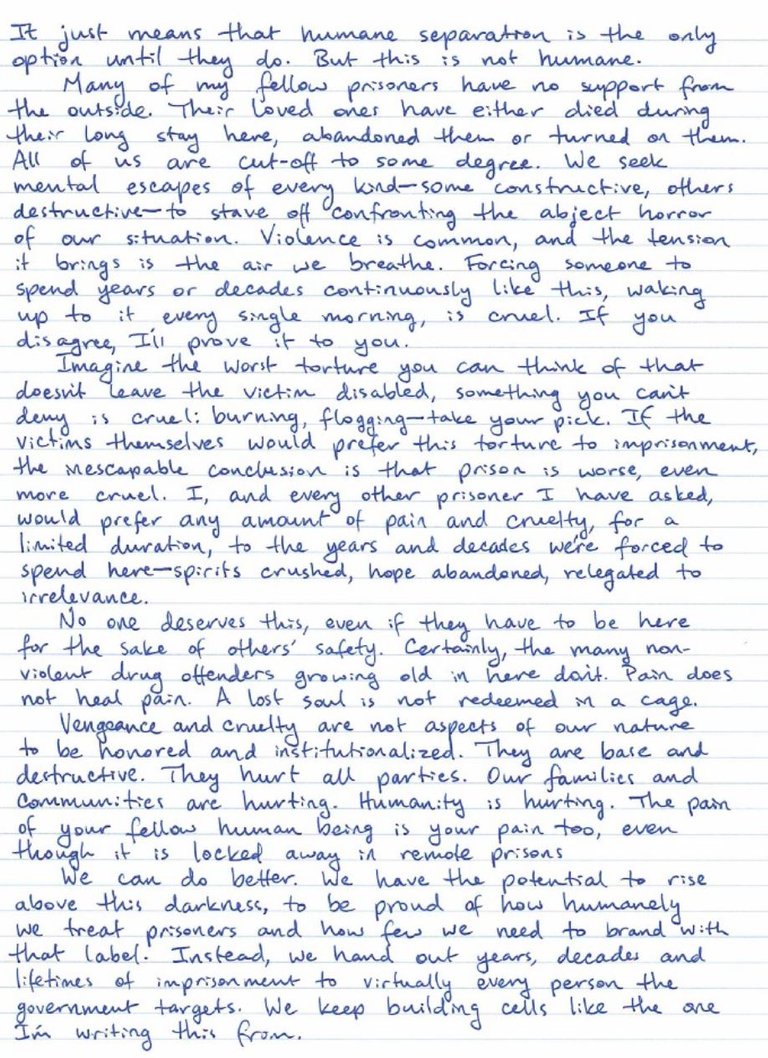 It just means that humane separation is the only
option until they do. But this is not humane.
Many of my fellow prisoners have no support from
the outside. Their loved ones have either died during
their long stay here, abandoned them or turned on them.
All of us are cut-off to some degree. We seek
mental escapes of every kind—some constructive, others
destructive—to stave off confronting the abject horror
of our situation. Violence is common, and the tension
it brings is the air we breathe. Forcing someone to
spend years or decades continuously like this, waking
up to it every single morning, is cruel. If you
disagree, I'll prove it to you.
Imagine the worst torture you can think of that
doesn't leave the victim disabled, something you can't
deny is cruel: burning, flogging—take your pick. If the
victims themselves would prefer this torture to imprisonment,
the inescapable conclusion is that prison is worse, even
more cruel. I, and every other prisoner I have asked,
would prefer any amount of pain and cruelty, for a
limited duration, to the years and decades we're forced to
spend here—spirits crushed, hope abandoned, relegated to
irrelevance.
No one deserves this, even if they have to be here
for the sake of others' safety. Certainly, the many non-
violent drug offenders growing old in here don't. Pain does
not heal pain. A lost soul is not redeemed in a cage.
Vengeance and cruelty are not aspects of our nature
to be honored and institutionalized. They are base and
destructive. They hurt all parties. Our families and
communities are hurting. Humanity is hurting. The pain
of your fellow human being is your pain too, even
though it is locked away in remote prisons
We can do better. We have the potential to rise
above this darkness, to be proud of how humanely
we treat prisoners and how few we need to brand with
that label. Instead, we hand out years, decades and
lifetimes of imprisonment to virtually every person the
government targets. We keep building cells like the one
I'm writing this from.